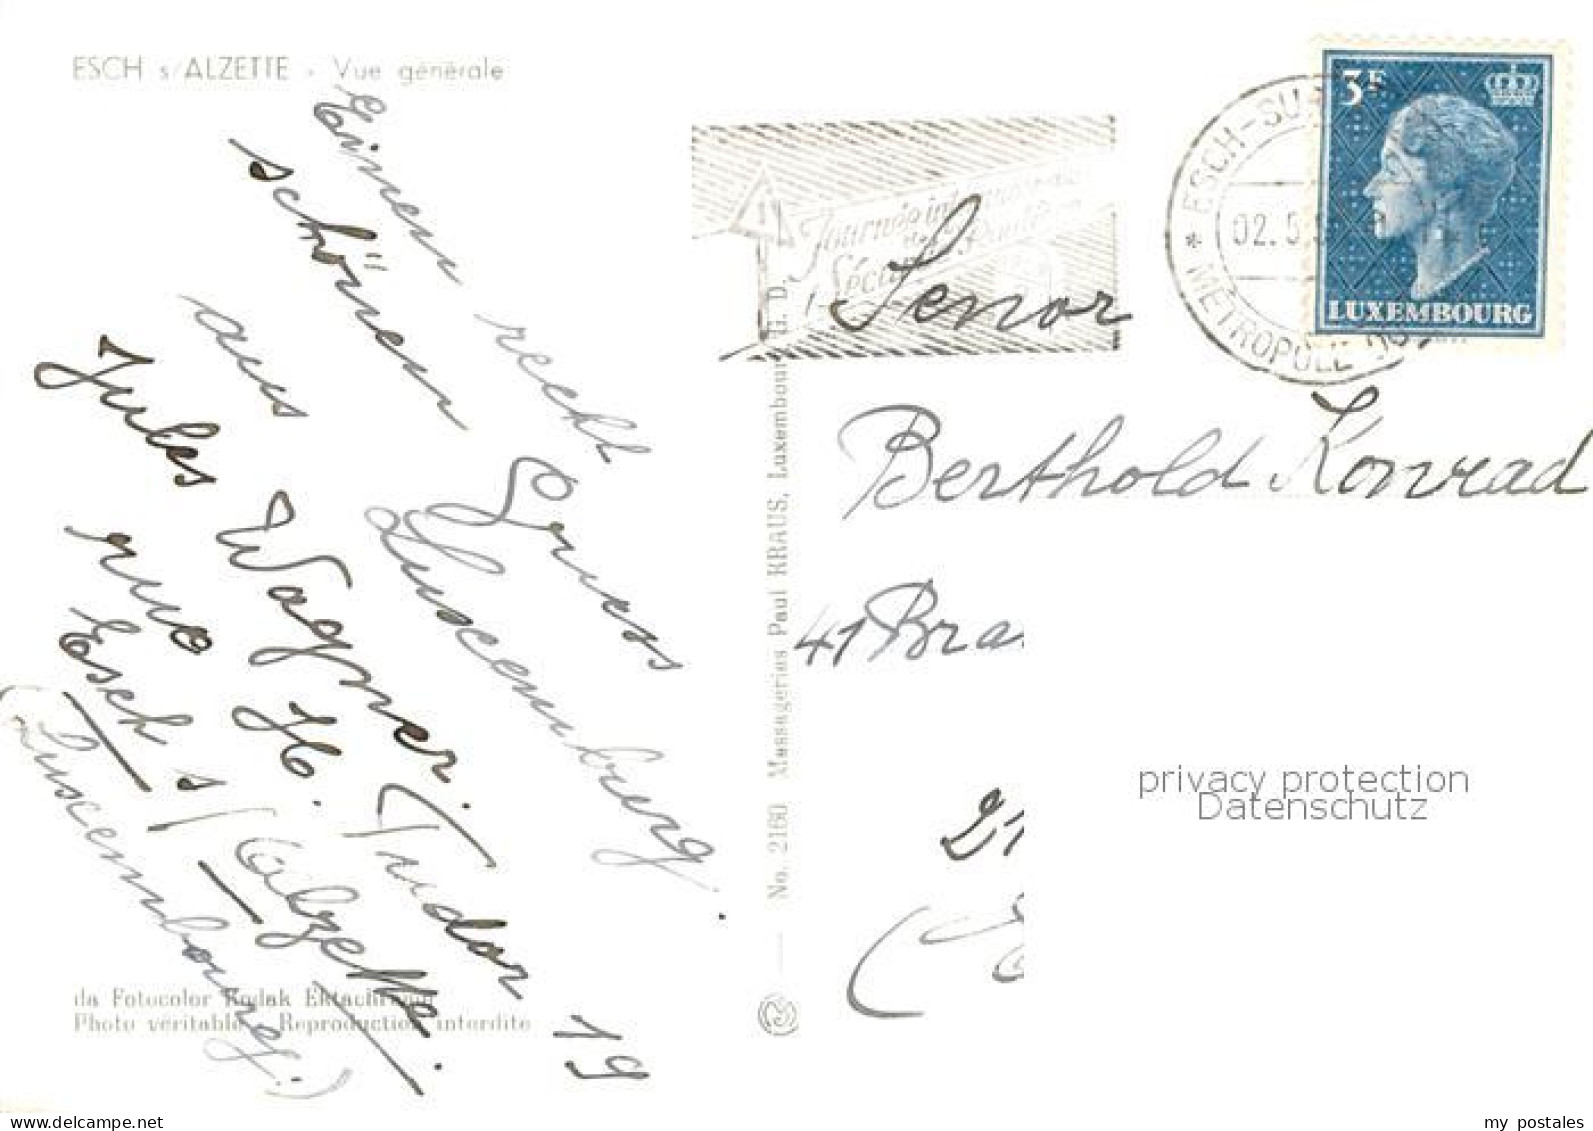 ESCH s/ALZETTE - Vue générale
Einen recht
schönen Gruss
aus Luxemburg.
Jules Wagner.
rue H. Tudor 19
Esch s/Alzette.
(Luxembourg.)
da Fotocolor Kodak Ektachrome
Photo véritable - Reproduction interdite
No. 2160 Messageries Paul KRAUS, Luxembourg G. D.
Journée internationale
Sécurité Routière
ESCH-SUR
02.5.5
METROPOLE DU
3F
LUXEMBOURG
Senor
Berthold Konrad
41 Bra
21
privacy protection
Datenschutz
delcampe.net
my_postales